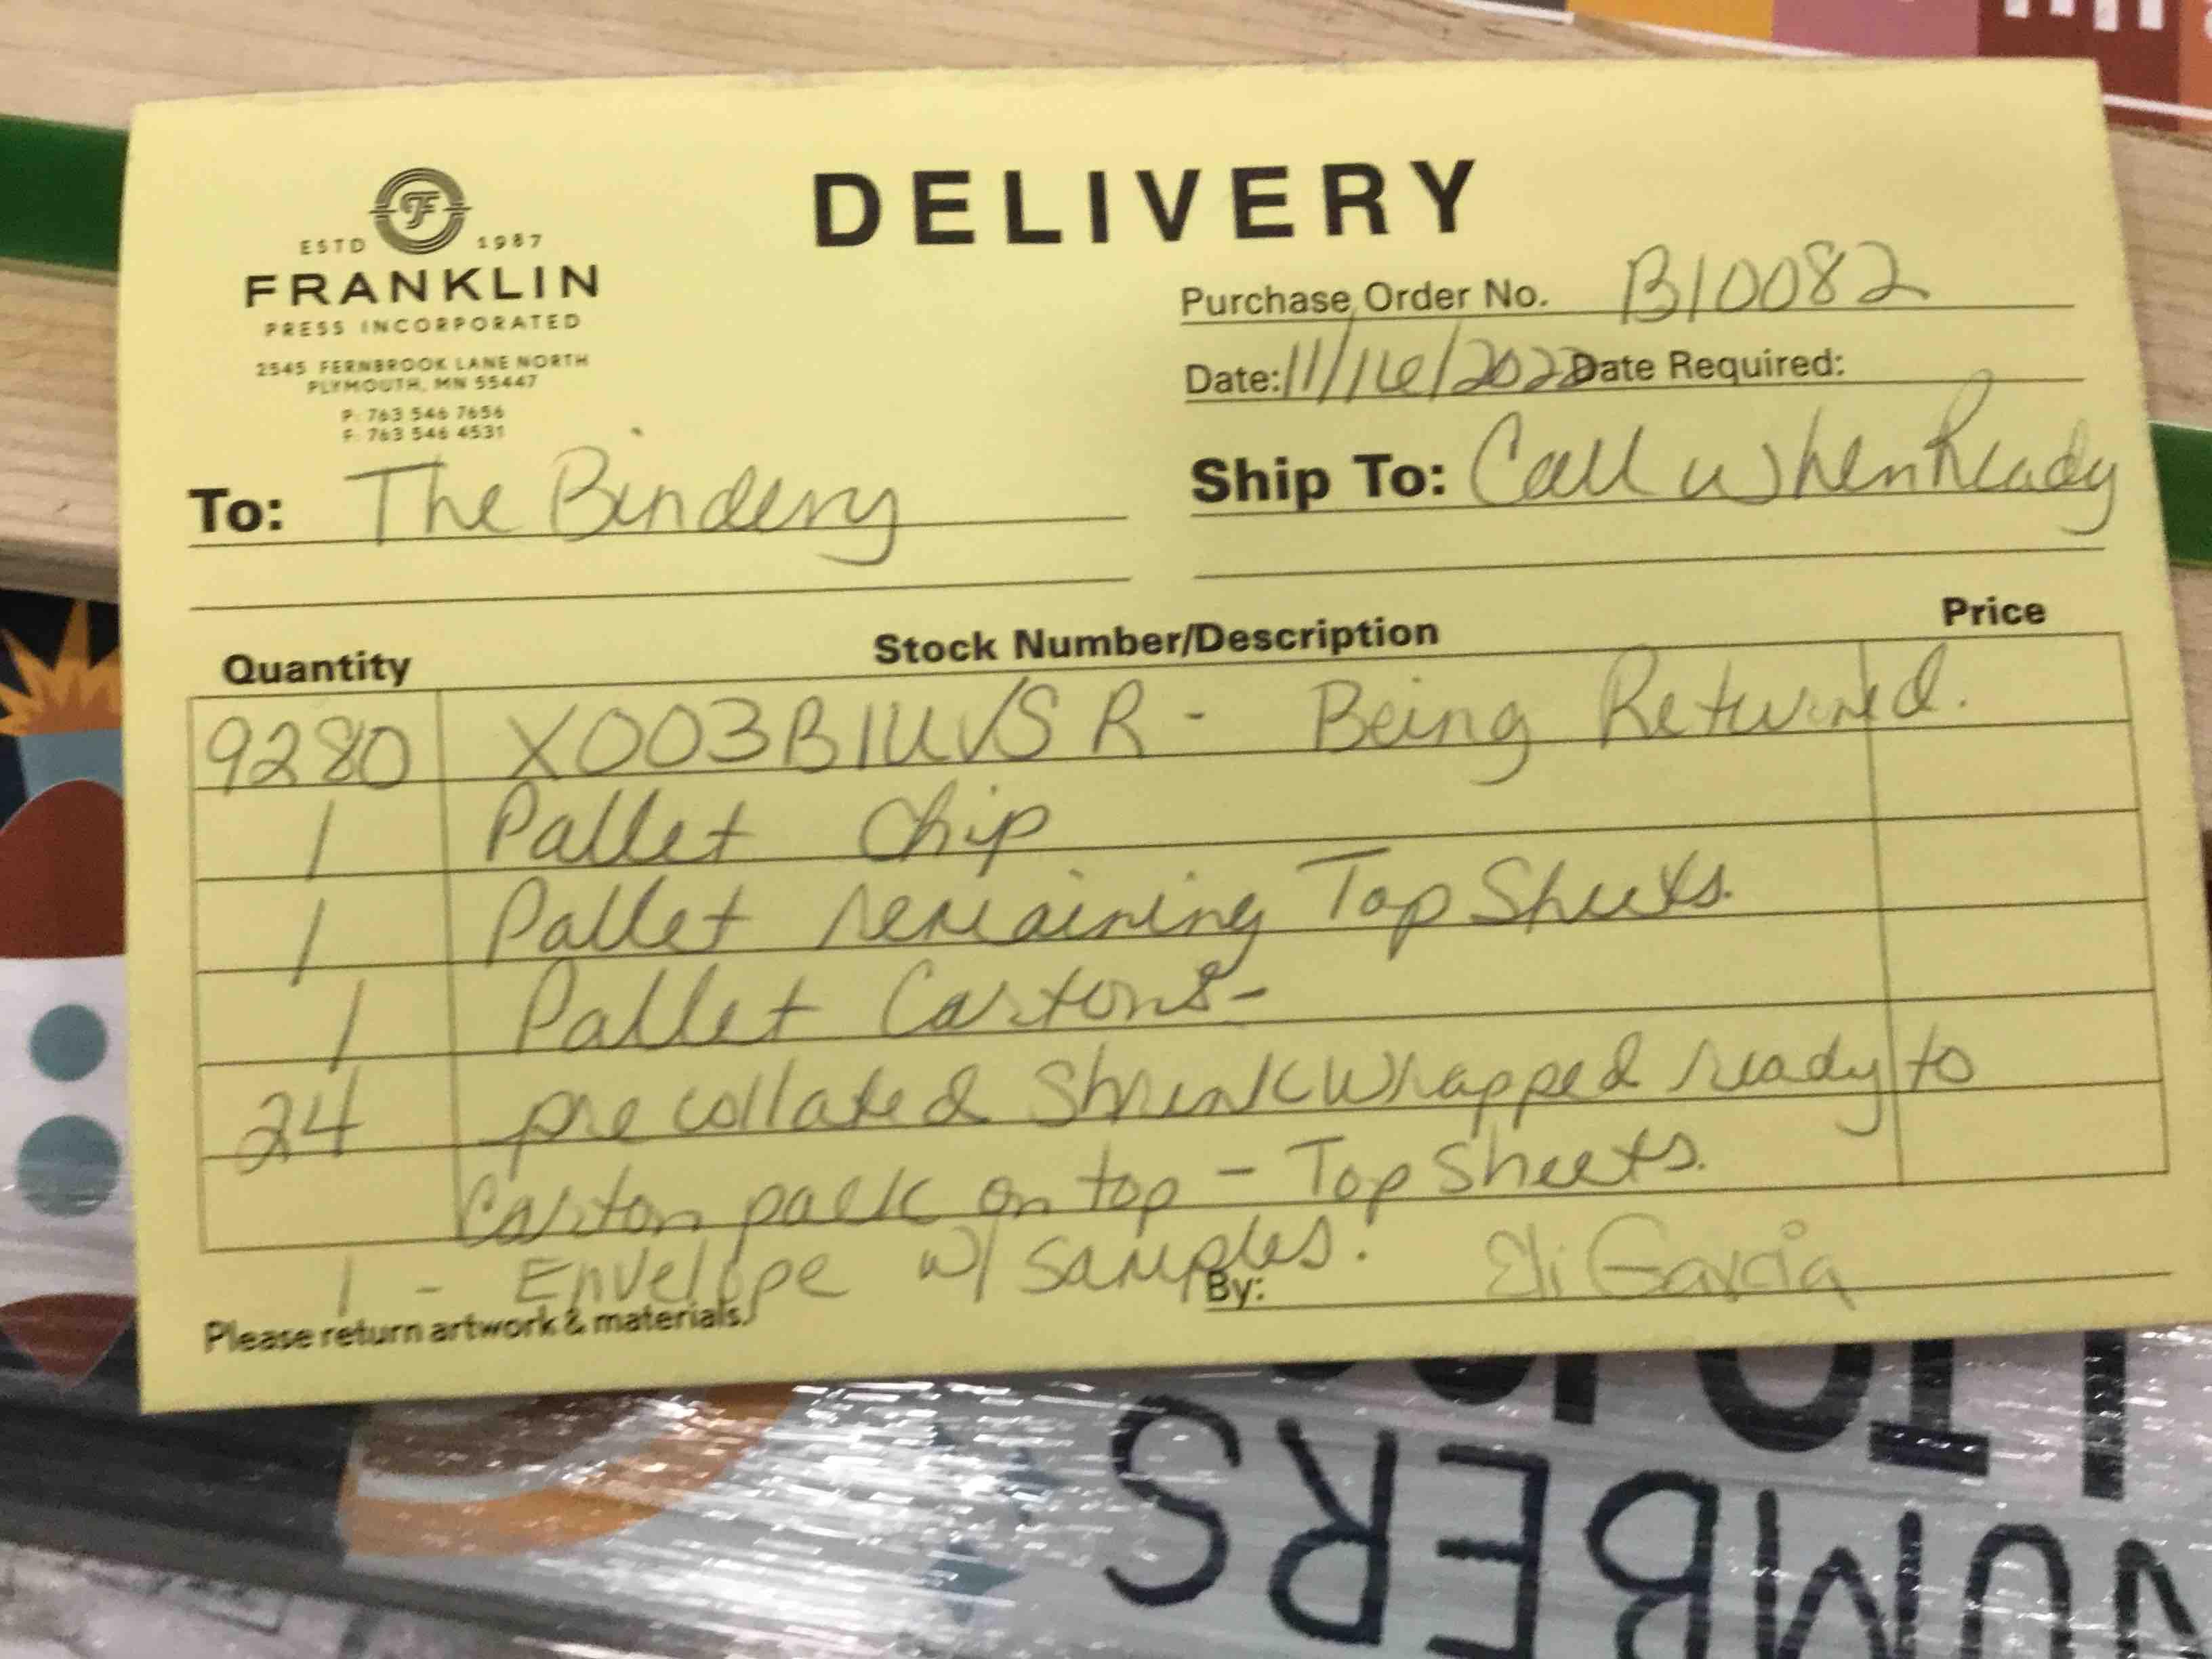 ESTD 1987
FRANKLIN
PRESS INCORPORATED
2545 FERNBROOK LANE NORTH
PLYMOUTH, MN 55447
P: 763 546 7656
F: 763 546 4531
DELIVERY
Purchase Order No. B10082
Date: 11/16/2022 Date Required:
To: The Bindery
Ship To: Call when Ready
Quantity Stock Number/Description Price
9280 X003B1UVSR - Being Returned.
1 Pallet Chip
1 Pallet remaining Top Sheets.
1 Pallet Cartons -
24 pre collated Shrinkwrapped ready to
Carton pack on top - Top Sheets.
1 - Envelope w/ samples.
By: Eli Garcia
Please return artwork & materials.
NUMBERS